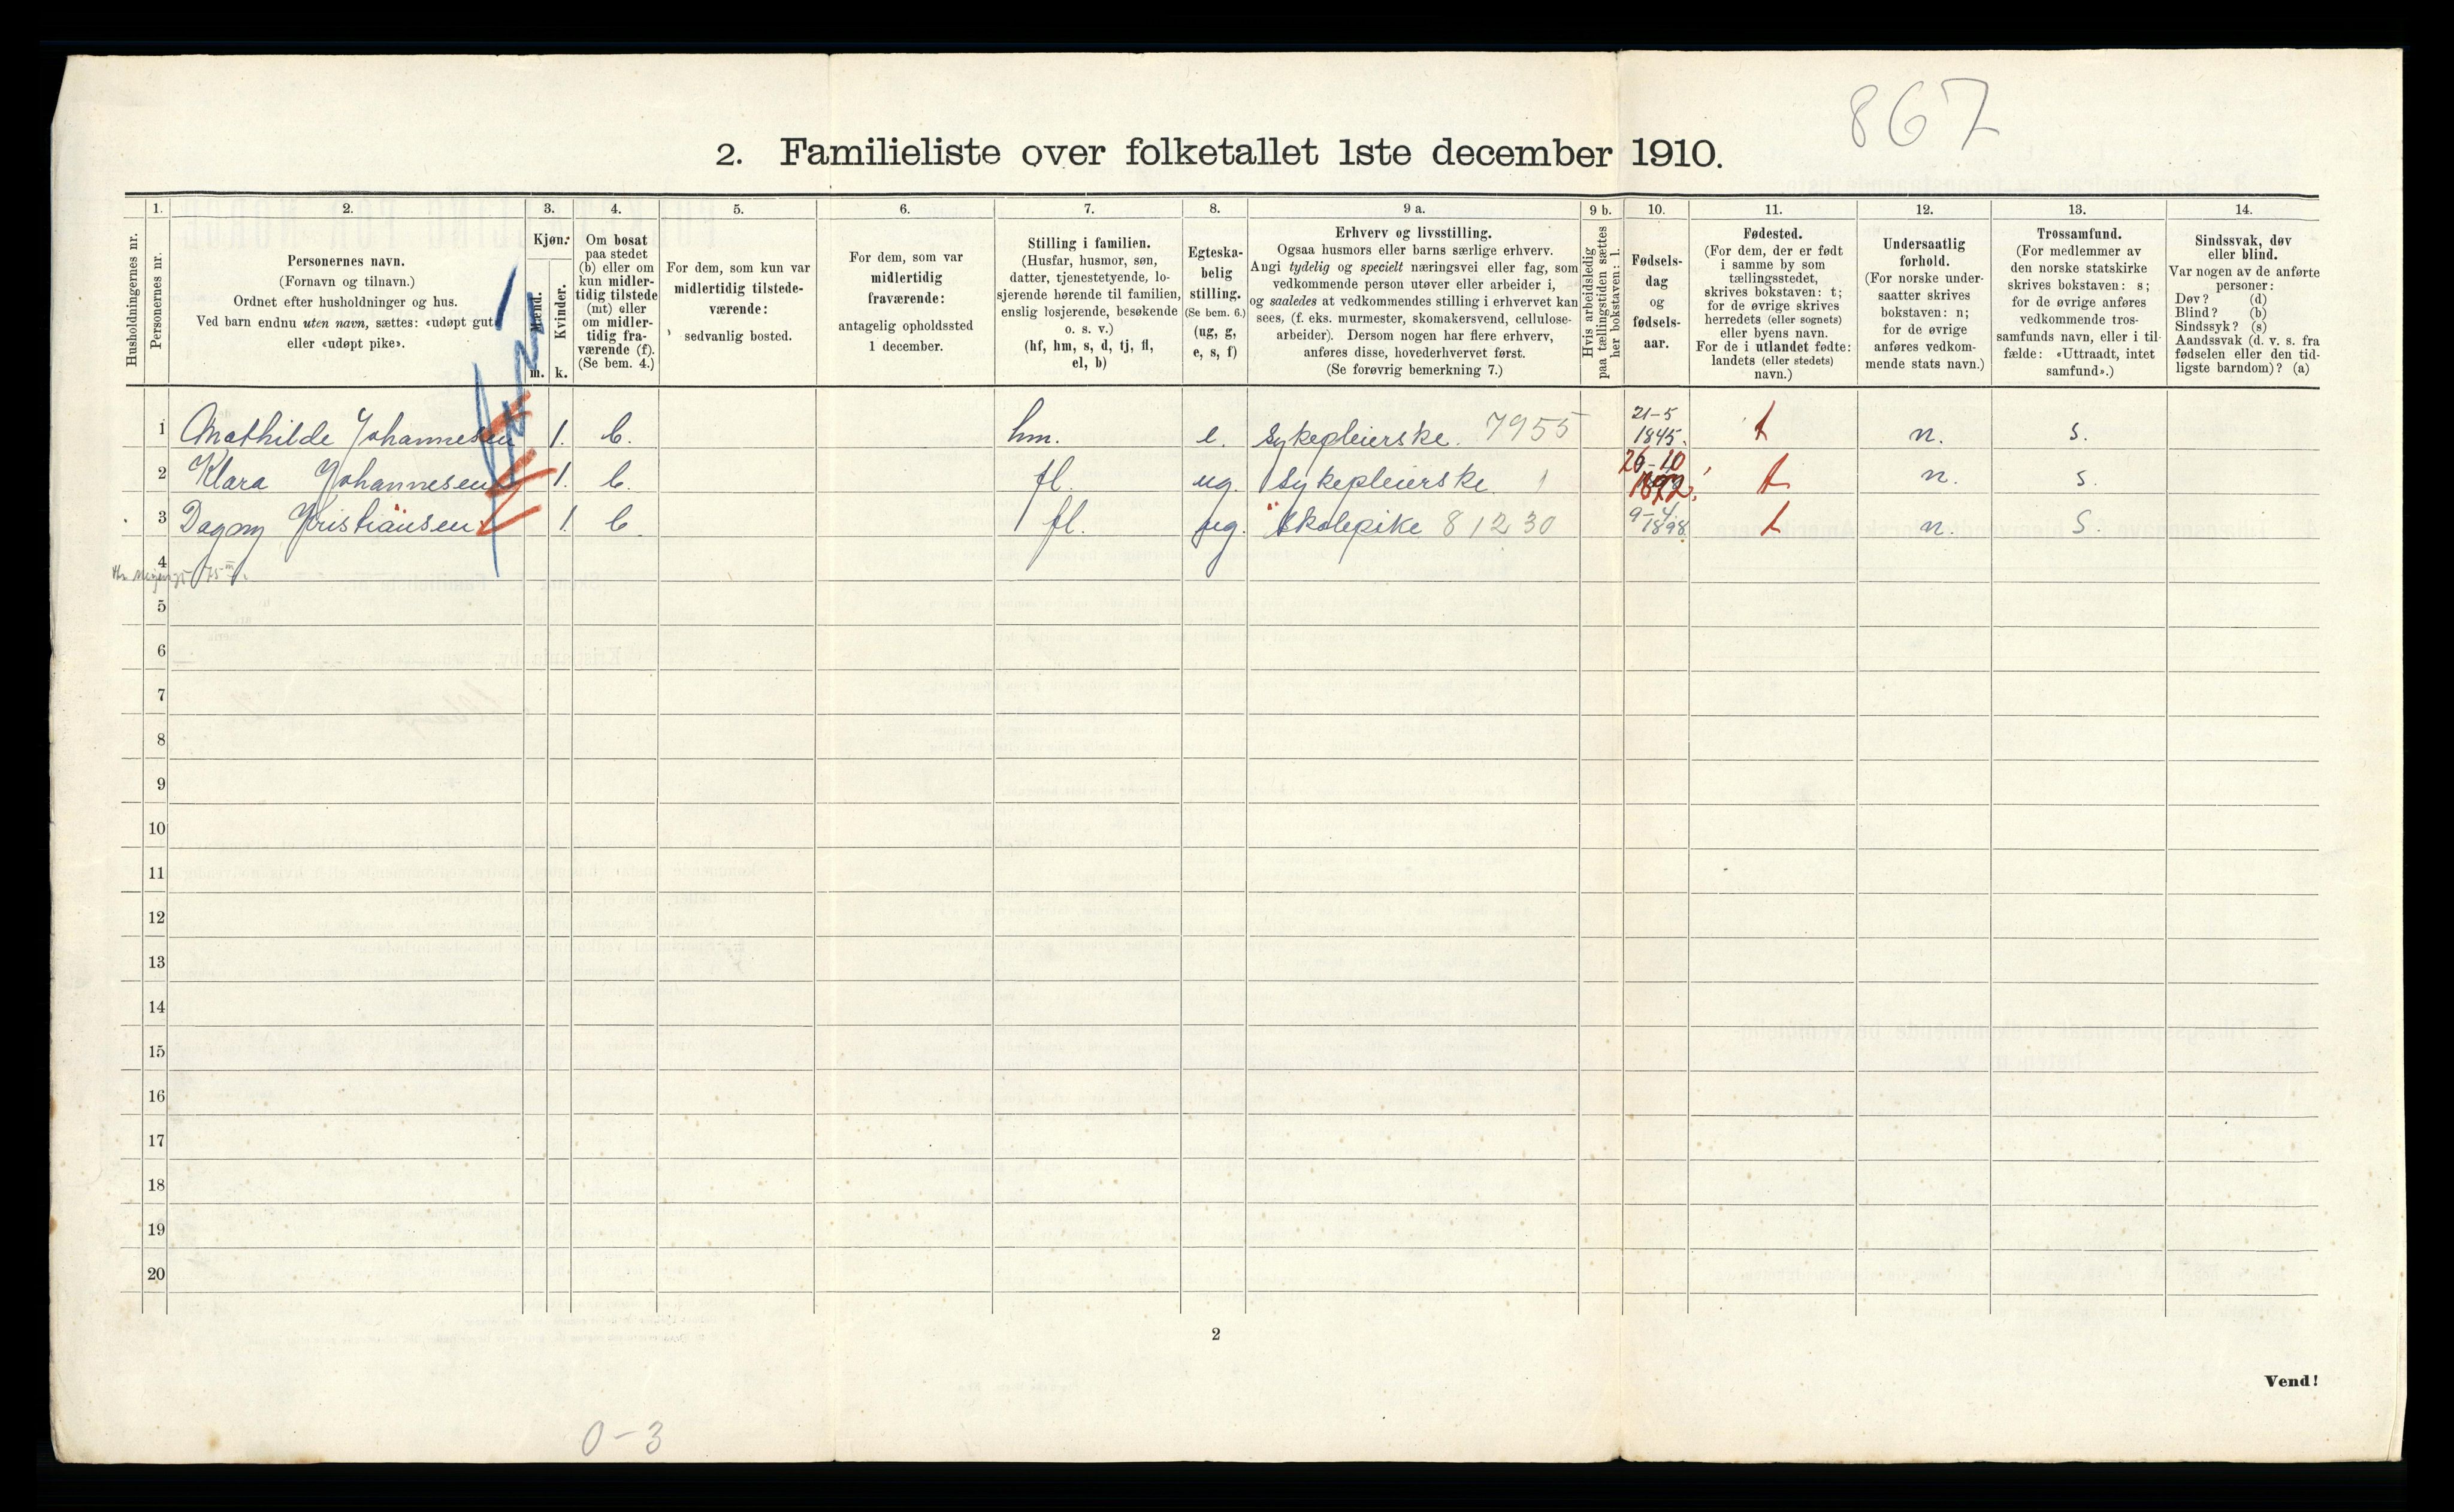 867
2. Familieliste over folketallet 1ste december 1910.
Husholdningernes nr.
1.
Personernes nr.
2.
Personernes navn.
(Fornavn og tilnavn.)
Ordnet efter husholdninger og hus.
Ved barn endnu uten navn, sættes: «udøpt gut»
eller «udøpt pike».
3.
Kjøn.
Mænd.
m.
Kvinder.
k.
4.
Om bosat
paa stedet
(b) eller om
kun midler-
tidig tilstede
(mt) eller
om midler-
tidig fra-
værende (f).
(Se bem. 4.)
5.
For dem, som kun var
midlertidig tilstede-
værende:
sedvanlig bosted.
6.
For dem, som var
midlertidig
fraværende:
antagelig opholdssted
1 december.
7.
Stilling i familien.
(Husfar, husmor, søn,
datter, tjenestetyende, lo-
sjerende hørende til familien,
enslig losjerende, besøkende
o. s. v.)
(hf, hm, s, d, tj, fl,
el, b)
8.
Egteska-
belig
stilling.
(Se bem. 6.)
(ug, g,
e, s, f)
9 a.
Erhverv og livsstilling.
Ogsaa husmors eller barns særlige erhverv.
Angi tydelig og specielt næringsvei eller fag, som
vedkommende person utøver eller arbeider i,
og saaledes at vedkommendes stilling i erhvervet kan
sees, (f. eks. murmester, skomakersvend, cellulose-
arbeider). Dersom nogen har flere erhverv,
anføres disse, hovederhvervet først.
(Se forøvrig bemerkning 7.)
9 b.
Hvis arbeidsledig
paa tællingstiden sættes
her bokstaven: l.
10.
Fødsels-
dag
og
fødsels-
aar.
11.
Fødested.
(For dem, der er født
i samme by som
tællingsstedet,
skrives bokstaven: t;
for de øvrige skrives
herredets (eller sognets)
eller byens navn.
For de i utlandet fødte:
landets (eller stedets)
navn.)
12.
Undersaatlig
forhold.
(For norske under-
saatter skrives
bokstaven: n;
for de øvrige
anføres vedkom-
mende stats navn.)
13.
Trossamfund.
(For medlemmer av
den norske statskirke
skrives bokstaven: s;
for de øvrige anføres
vedkommende tros-
samfunds navn, eller i til-
fælde: «Uttraadt, intet
samfund».)
14.
Sindssvak, døv
eller blind.
Var nogen av de anførte
personer:
Døv? (d)
Blind? (b)
Sindssyk? (s)
Aandssvak (d. v. s. fra
fødselen eller den tid-
ligste barndom)? (a)
1 Mathilde Johannesen 1. b. hm. e. Sykepleierske. 7955 21-5 1845. t n. s.
2 Klara Johannesen 1. b. fl. ug. Sykepleierske 1 26-10 1872. t n. s.
3 Dagny Kristiansen 1. b fl. ug. Skolepike 8 12 30 9-4 1898. t n. s.
4
5
6
7
8
9
10
11
12
13
14
15
16
17
18
19
20
2
Vend!
0-3